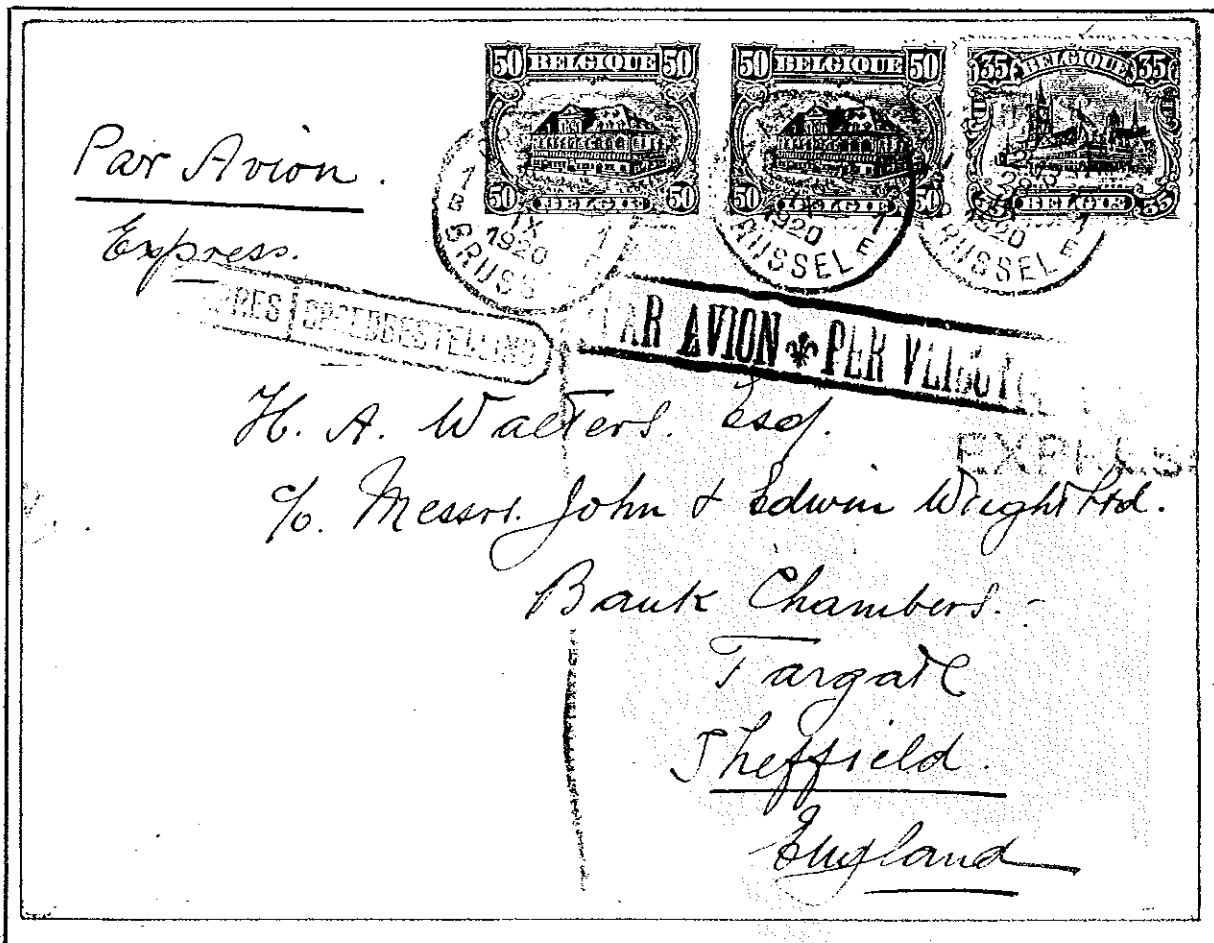 50 BELGIQUE 50
50 BELGIË 50
50 BELGIQUE 50
50 BELGIË 50
35 BELGIQUE 35
35 BELGIË 35
Par Avion.
Express.
1 B
IX
1920
BRUSS
1920
BRUSSEL E
1920
BRUSSEL E
SPOEDBESTELLING
PAR AVION PER
EXPRES
H. A. Walters. Esq.
c/o. Messrs. John & Edwin Wright Ltd.
Bank Chambers. -
Fargate
Sheffield.
England